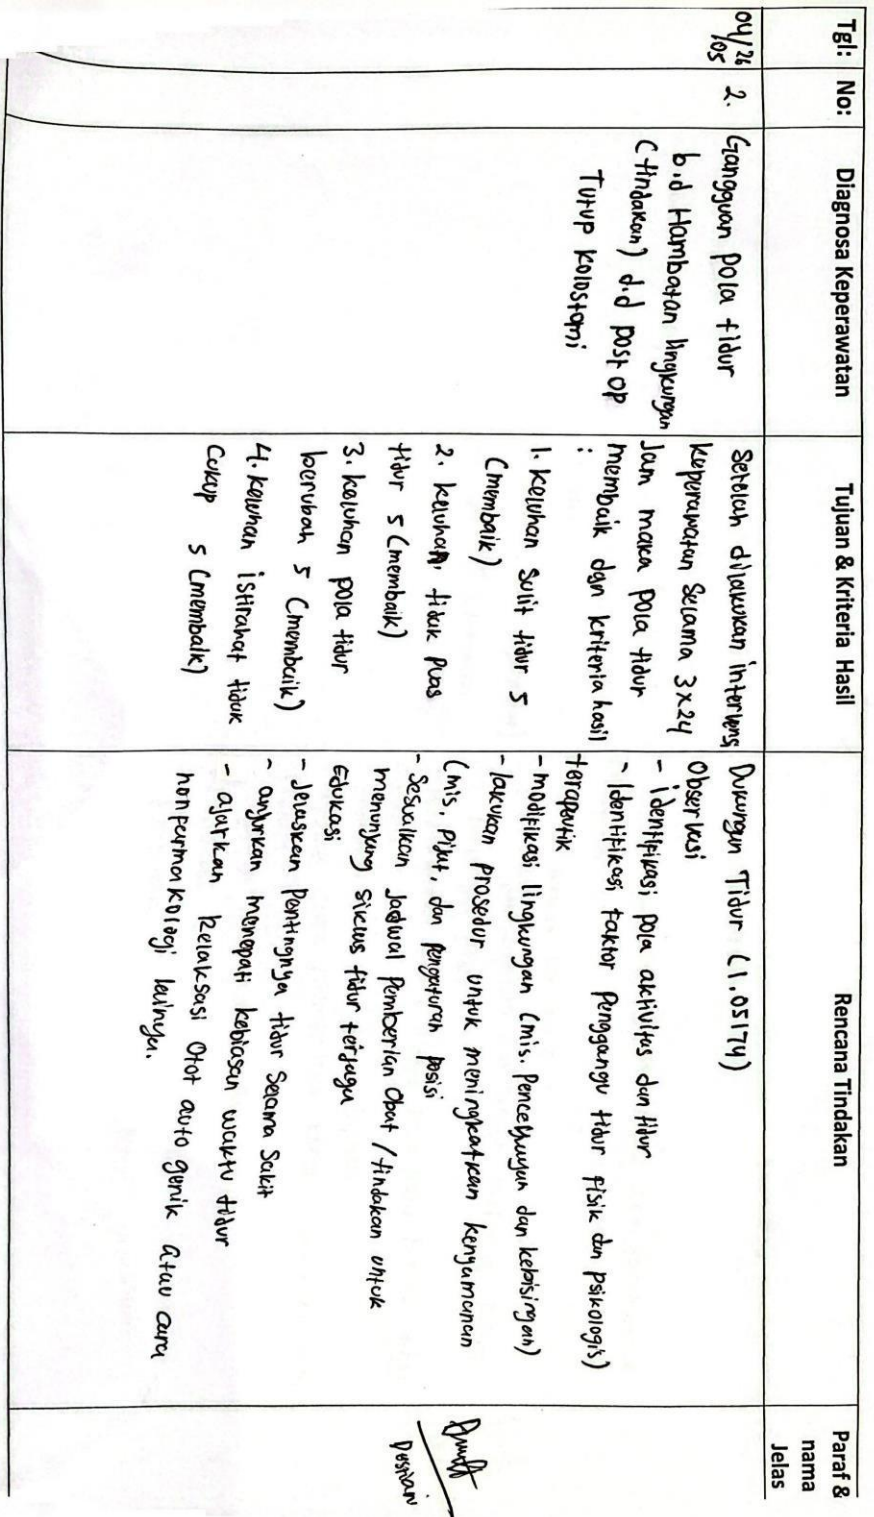 Tgl:
No:
Diagnosa Keperawatan
Tujuan & Kriteria Hasil
Rencana Tindakan
Paraf &
nama
Jelas
04/26
/05
2.
Gangguan pola tidur
b.d Hambatan lingkungan
(tindakan) d.d post op
Tutup kolostomi
Setelah dilakukan intervensi
keperawatan selama 3x24
Jam maka pola tidur
membaik dgn kriteria hasil
:
1. keluhan sulit tidur 5
(membaik)
2. keluhan tidak puas
tidur 5 (membaik)
3. keluhan pola tidur
berubah 5 (membaik)
4. keluhan istirahat tidak
cukup 5 (membaik)
Dukungan Tidur (1.05174)
Observasi
- identifikasi pola aktivitas dan tidur
- Identifikasi faktor Penggangu tidur fisik dan psikologis)
terapeutik
- modifikasi lingkungan (mis. Pencehayan dan kebisingan)
- lakukan prosedur untuk meningkatkan kenyamanan
(mis. pijat, dan pengaturan posisi
- Sesuaikan Jadwal Pemberian Obat / tindakan untuk
menunjang siklus tidur terjaga
Edukasi
- Jelaskan Pentingnya tidur Selama Sakit
- anjurkan menepati kebiasan waktu tidur
- ajarkan Relaksasi Otot autogenik atau cara
nonfarmakologi lainnya.